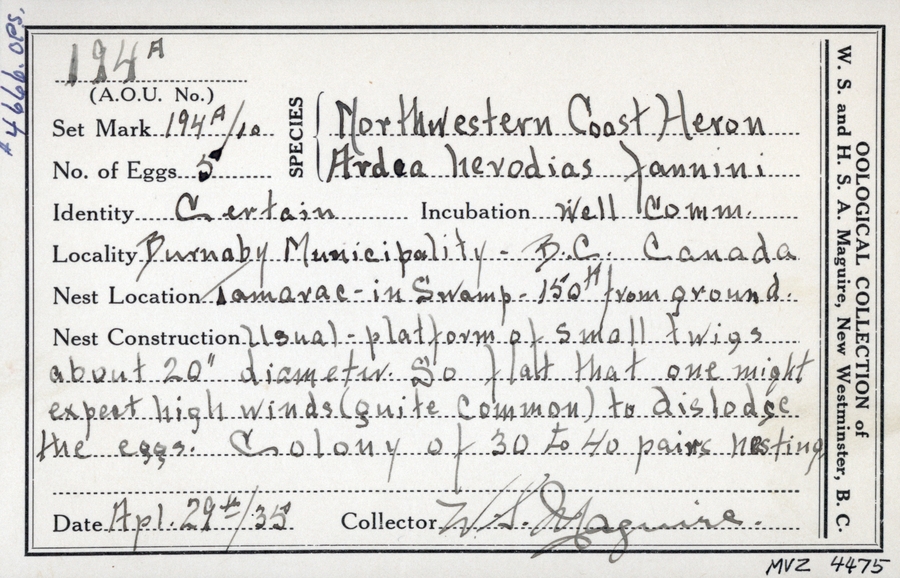 # 4666. OPS.
194 A
(A.O.U. No.)
Set Mark 194 A/10
No. of Eggs 5
SPECIES
Northwestern Coast Heron
Ardea herodias fannini
Identity Certain Incubation Well Comm.
Locality Burnaby Municipality - B.C. Canada
Nest Location Tamarac - in Swamp - 150 ft from ground.
Nest Construction Usual - platform of small twigs
about 20" diameter. So flat that one might
expect high winds (quite common) to dislodge
the eggs. Colony of 30 to 40 pairs nesting
Date Apl. 29th/35 Collector W. S. Maguire.
OOLOGICAL COLLECTION of
W. S. and H. S. A. Maguire, New Westminster, B. C.
MVZ 4475